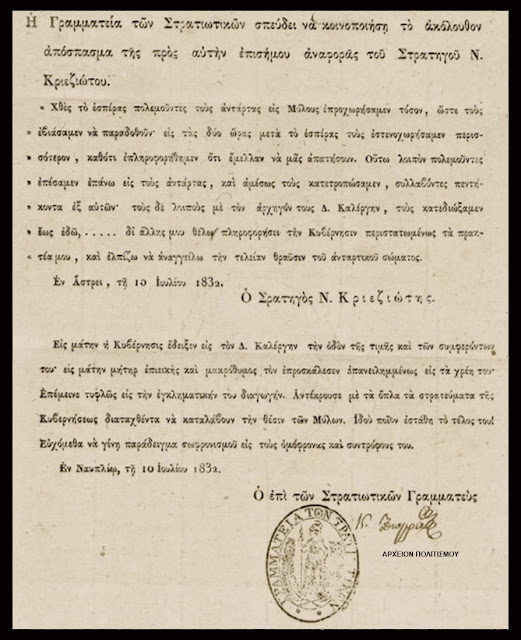 Ἡ Γραμματεία τῶν Στρατιωτικῶν σπεύδει νὰ κοινοποιήσῃ τὸ ἀκόλουθον
ἀπόσπασμα τῆς πρὸς αὐτὴν ἐπισήμου ἀναφορᾶς τοῦ Στρατηγοῦ Ν.
Κριεζιώτου.
« Χθὲς τὸ ἑσπέρας πολεμοῦντες τοὺς ἀντάρτας εἰς Μύλους ἐπροχωρήσαμεν τόσον, ὥστε τοὺς
» ἐβιάσαμεν νὰ παραδοθοῦν· εἰς τὰς δύο ὥρας μετὰ τὸ ἑσπέρας τοὺς ἐστενοχωρήσαμεν περισ-
» σότερον, καθότι ἐπληροφορήθημεν ὅτι ἔμελλαν νὰ μᾶς ἀπατήσουν. Οὕτω λοιπὸν πολεμοῦντες
» ἐπέσαμεν ἐπάνω εἰς τοὺς ἀντάρτας, καὶ ἀμέσως τοὺς κατετροπώσαμεν, συλλαβόντες πεντή-
» κοντα ἐξ αὐτῶν· τοὺς δὲ λοιποὺς μὲ τὸν ἀρχηγόν τους Δ. Καλέργην, τοὺς κατεδιώξαμεν
» ἕως ἐδῶ, ..... δι ἄλλης μου θέλω πληροφορήσει τὴν Κυβέρνησιν περιστατωμένως τὰ πρακ-
» τέα μου, καὶ ἐλπίζω νὰ ἀναγγείλω τὴν τελείαν θραῦσιν τοῦ ἀνταρτικοῦ σώματος.
Ἐν Ἄστρει, τῇ 10 Ἰουλίου 1832.
Ὁ Σρατηγὸς Ν. Κριεζιώτης.
Εἰς μάτην ἡ Κυβέρνησις ἔδειξεν εἰς τὸν Δ. Καλέργην τὴν ὁδὸν τῆς τιμῆς καὶ τῶν συμφερόντων
του· εἰς μάτην μήτηρ ἐπιεικὴς καὶ μακρόθυμος τὸν ἐπροσκάλεσεν ἐπανειλημμένως εἰς τὰ χρέη του·
Ἐπέμεινε τυφλῶς εἰς τὴν ἐγκληματικήν του διαγωγήν. Ἀντέκρουσε μὲ τὰ ὅπλα τὰ στρατεύματα τῆς
Κυβερνήσεως διαταχθέντα νὰ καταλάβουν τὴν θέσιν τῶν Μύλων. Ἰδοὺ ποῖον ἐστάθη τὸ τέλος του!
Εὐχόμεθα νὰ γίνῃ παράδειγμα σωφρονισμοῦ εἰς τοὺς ὁμόφρονας καὶ συντρόφους του.
Ἐν Ναυπλίῳ, τῇ 10 Ἰουλίου 1832.
Ὁ ἐπὶ τῶν Στρατιωτικῶν Γραμματεὺς
ΑΡΧΕΙΟΝ ΠΟΛΙΤΙΣΜΟΥ
ΓΡΑΜΜΑΤΕΙΑ ΤΩΝ